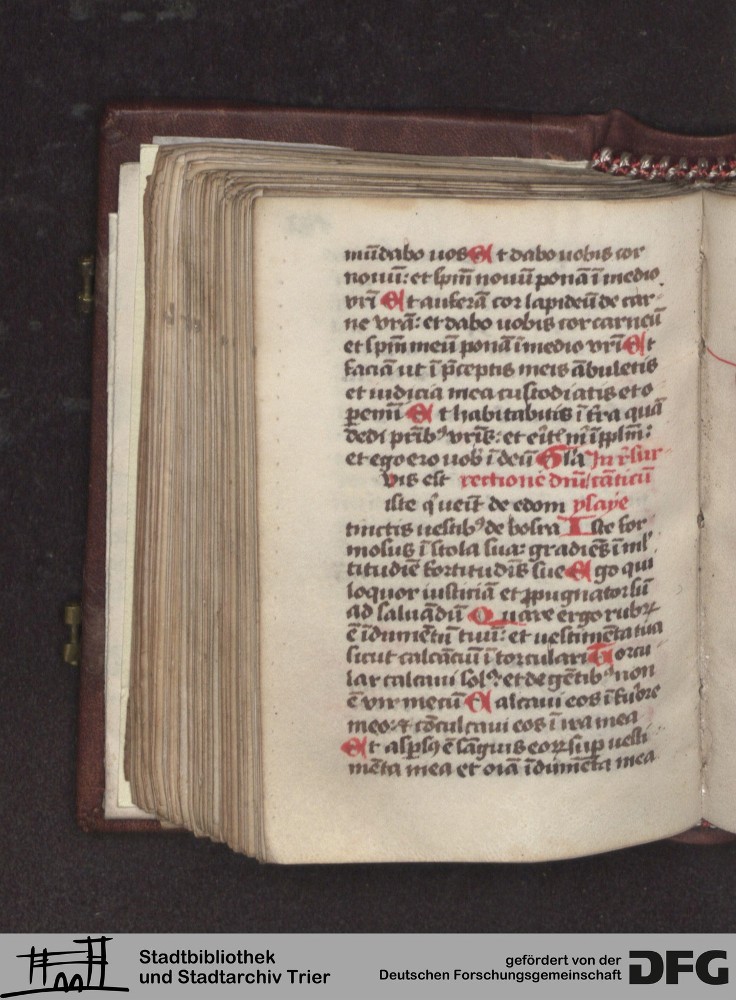 mūdabo uos Et dabo uobis cor
nouū: et spm̄ nouū ponā ī medio
vr̄i Et auferā cor lapideū de car-
ne vrā: et dabo uobis cor carneū
et spm̄ meū ponā ī medio vr̄i Et
faciā ut ī p̄ceptis meis ābuletis
et iudicia mea custodiatis et o
pemī Et habitabitis ī tr̄a quā
dedi prībꝰ vrīs: et eīt m̄ ī pplm̄:
et ego ero uob ī deū Gl̄a In r̄sur
Quis est rectione dn̄i cāticū
iste q̇ ueīt de edom ysaye
tinctis uestibꝰ de bosra Iste for
mosus ī stola sua: gradiēs ī ml'
titudīe fortitudīs sue Ego qui
loquor iusticiā et ꝓpugnator sū
ad saluādū Quare ergo rubꝝ
ē īdumētū tuū: et uestimēta tua
sicut calcāciū ī torculari Torcu
lar calcaui solꝰ: et de gētibꝰ non
ē vir mecū Calcaui eos ī furore
meo: ⁊ cōculcaui eos ī ira mea
Et asp̄sꝰ ē sāguis eoꝝ sup uesti
mēta mea et oīa īdumēta mea
Stadtbibliothek
und Stadtarchiv Trier
gefördert von der
Deutschen Forschungsgemeinschaft
DFG